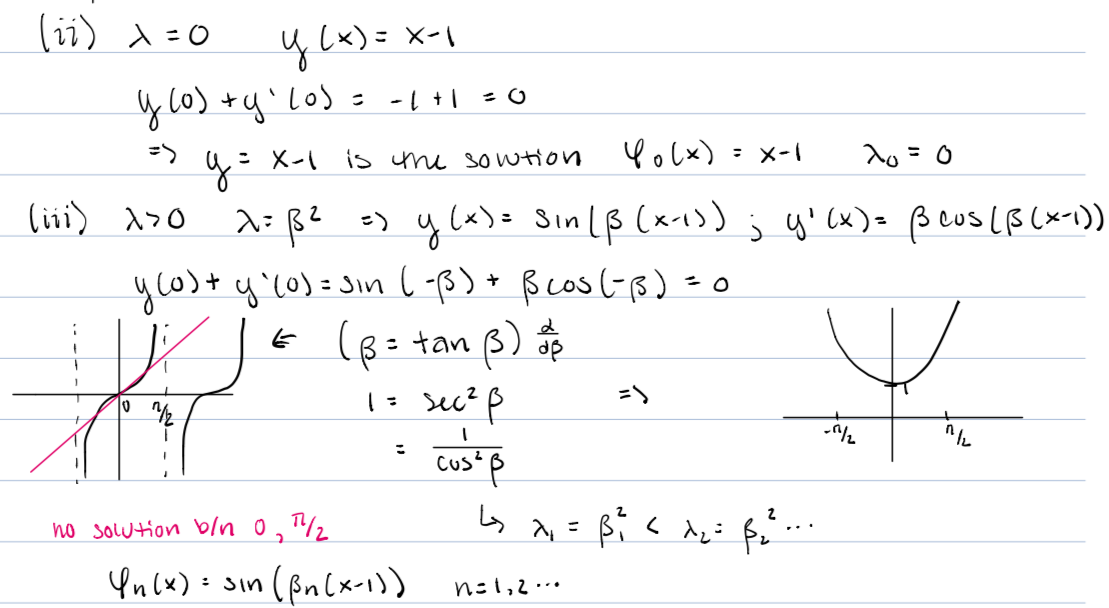 (ii) λ = 0 y(x) = x-1
y(0) + y'(0) = -1+1 = 0
=> y = x-1 is the solution φ₀(x) = x-1 λ₀ = 0
(iii) λ>0 λ = β² => y(x) = sin(β(x-1)) ; y'(x) = β cos(β(x-1))
y(0) + y'(0) = sin(-β) + β cos(-β) = 0
← (β = tan β) d/dβ
1 = sec² β =>
= 1/cos² β
0 π/2
1
-π/2 π/2
no solution b/n 0, π/2
↳ λ₁ = β₁² < λ₂ = β₂² ...
φn(x) = sin(βn(x-1)) n=1,2...